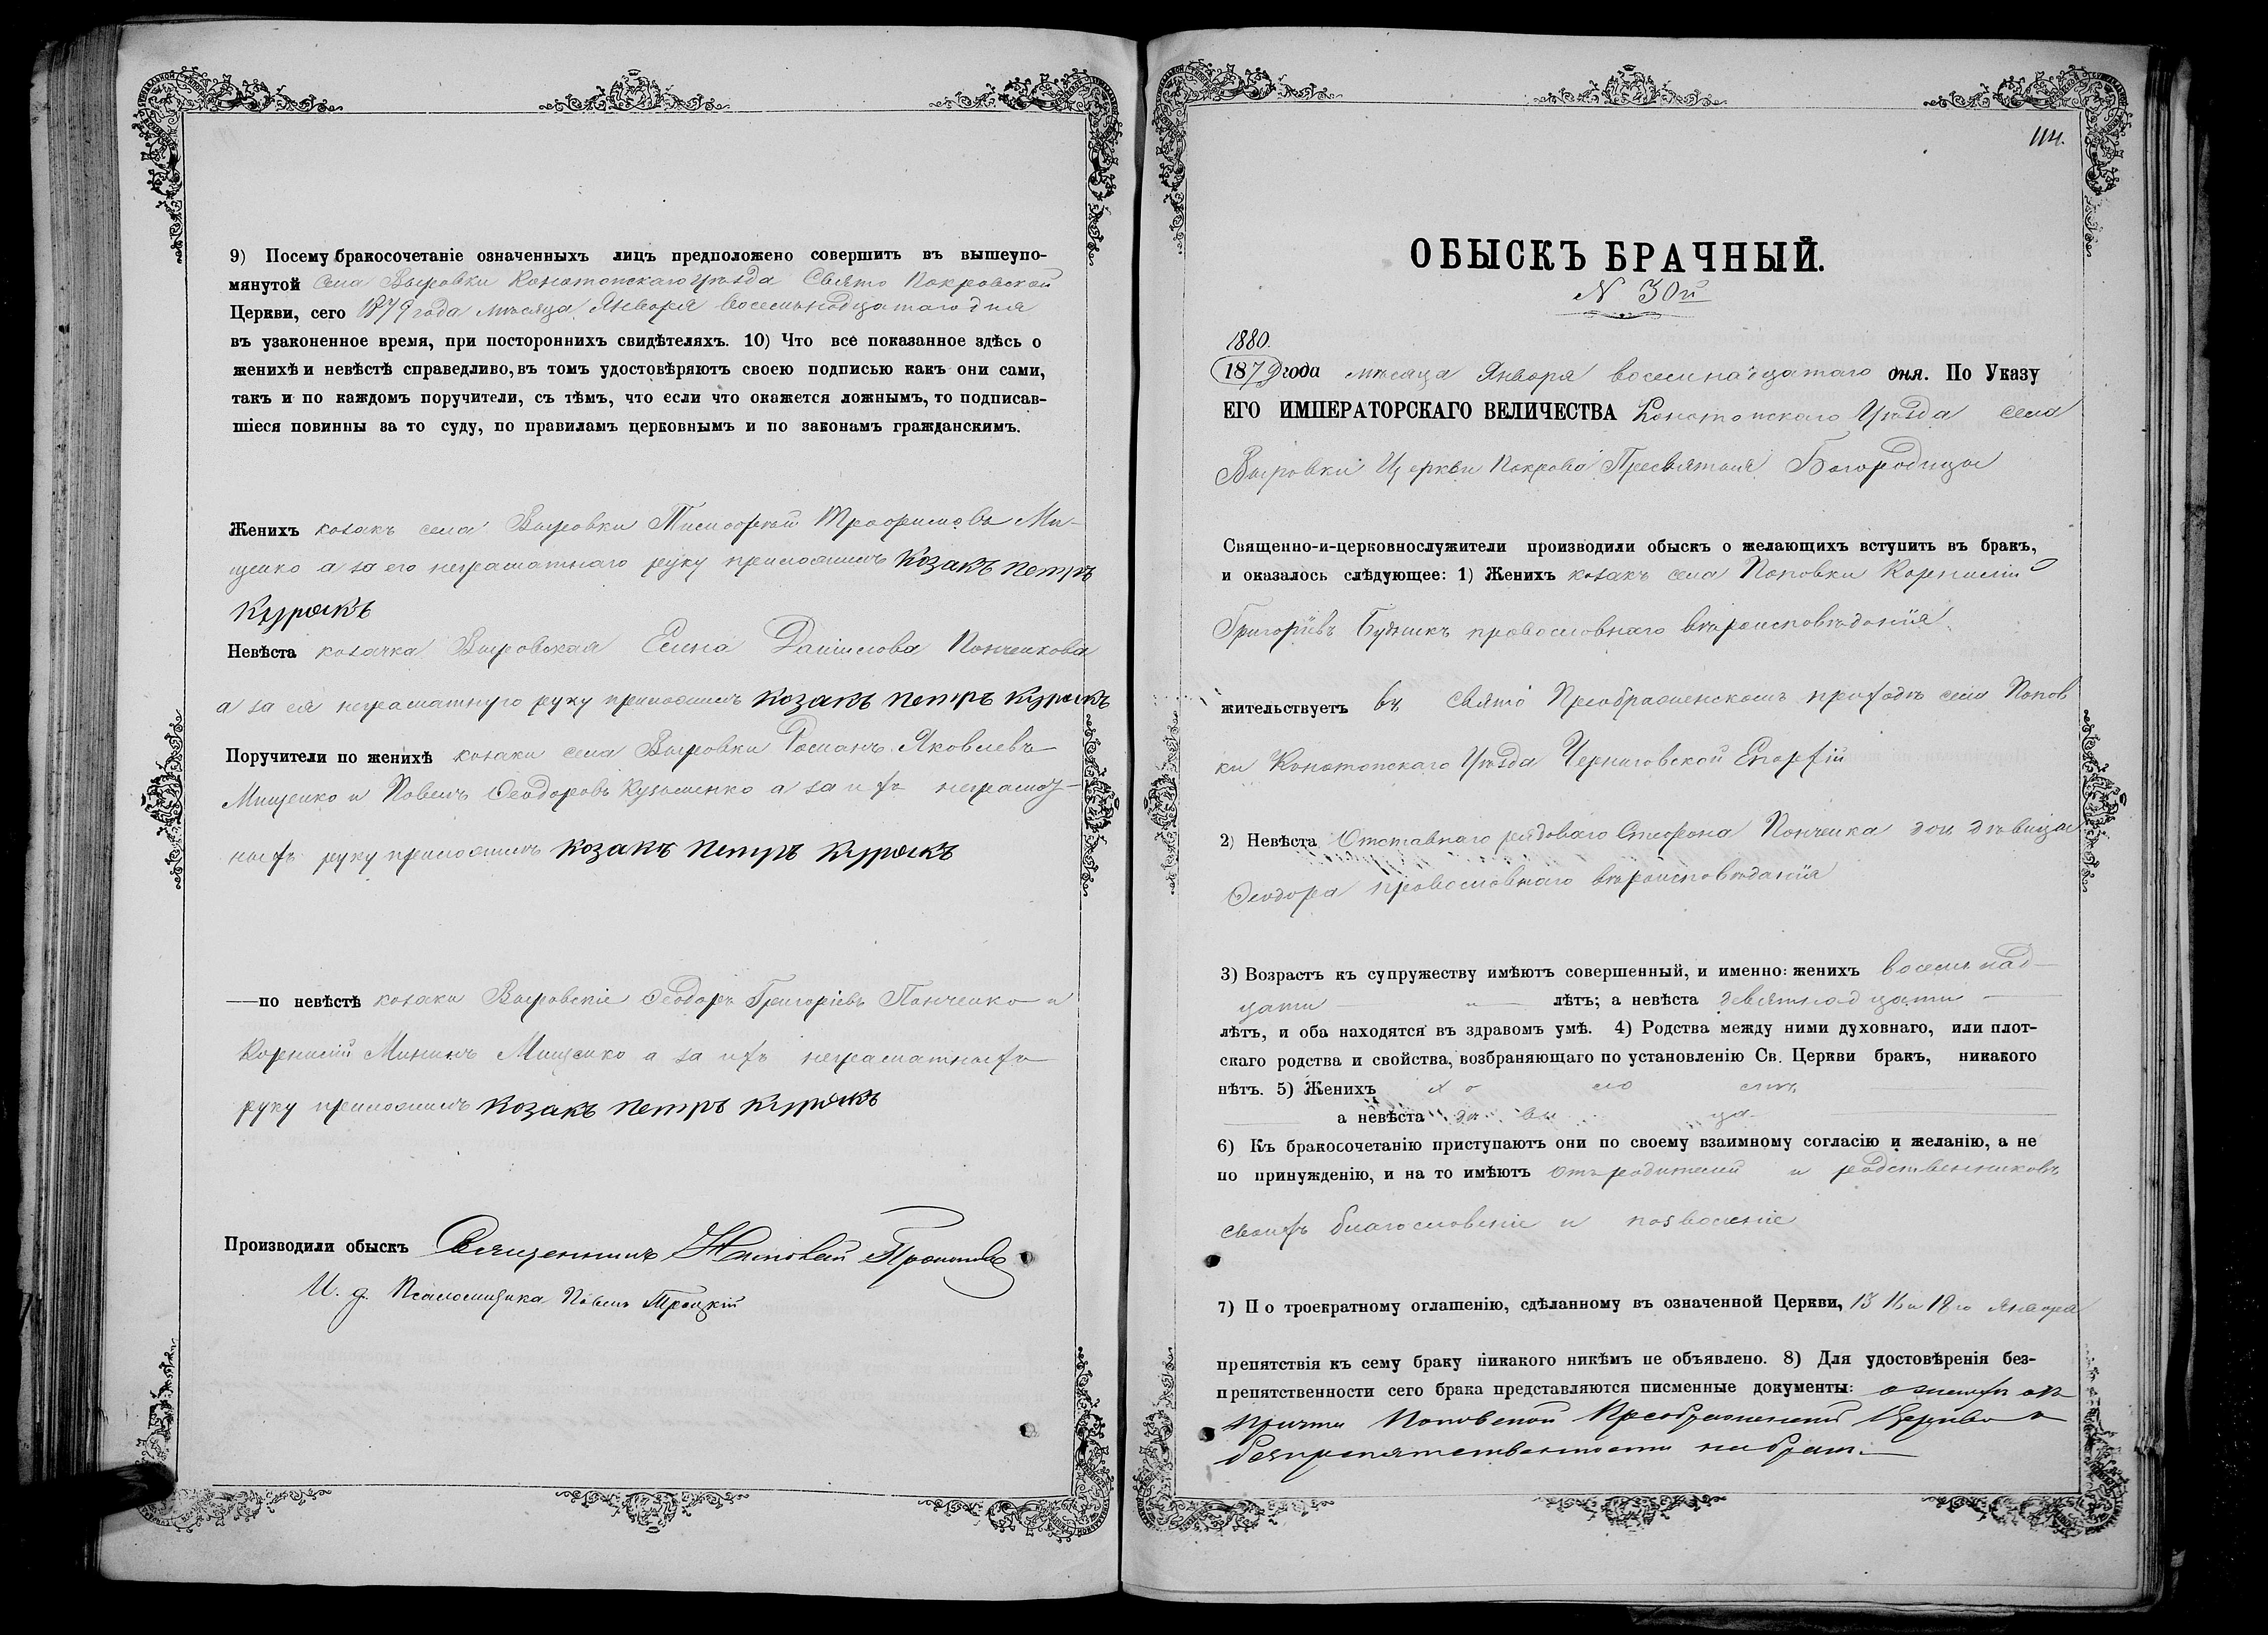 9) Посему бракосочетаніе означенныхъ лицъ предположено совершить въ вышеупо-
мянутой села Выровки Конотопскаго Уѣзда Свято Покровской
Церкви, сего 1879 года мѣсяца Января восемьнадцатаго дня
въ узаконенное время, при постороннихъ свидѣтеляхъ. 10) Что все показанное здѣсь о
женихѣ и невѣстѣ справедливо, въ томъ удостовѣряютъ своею подписью какъ они сами,
такъ и по каждомъ поручители, съ тѣмъ, что если что окажется ложнымъ, то подписав-
шіеся повинны за то суду, по правиламъ церковнымъ и по законамъ гражданскимъ.
Женихъ козакъ села Выровки Тимофей Трофимовъ Ми-
щенко а за его неграматнаго руку приложилъ Козакъ Петръ
Куракъ
Невѣста козачка Выровская Елена Даніилова Панченкова
а за ея неграматную руку приложилъ Козакъ Петръ Куракъ
Поручители по женихѣ козаки села Выровки Романъ Яковлевъ
Мищенко и Павелъ Феодоровъ Кузьменко а за ихъ неграмат-
ныхъ руку приложилъ Козакъ Петръ Куракъ
—по невѣстѣ козаки Выровскіе Феодоръ Григоріевъ Панченко и
Корнилій Мининъ Мищенко а за ихъ неграматныхъ
руку приложилъ Козакъ Петръ Куракъ
Производили обыскъ Священникъ
И. д. Псаломщика Павелъ Троцкій
114.
ОБЫСКЪ БРАЧНЫЙ.
N 30й
1880.
1879 года мѣсяца Января восемнадцатаго дня. По Указу
ЕГО ИМПЕРАТОРСКАГО ВЕЛИЧЕСТВА Конотопскаго Уѣзда села
Выровки Церкви Покрова Пресвятыя Богородицы
Священно-и-церковнослужители производили обыскъ о желающихъ вступить въ бракъ,
и оказалось слѣдующее: 1) Женихъ козакъ села Поповки Корнилій
Григоріевъ православнаго вѣроисповѣданія
жительствуетъ въ Свято Преображенскомъ приходѣ села Попов
ки Конотопскаго Уѣзда Черниговской Епархіи
2) Невѣста Отставнаго рядоваго Стефана Панченка дочь дѣвица
Феодора православнаго вѣроисповѣданія
3) Возрастъ къ супружеству имѣютъ совершенный, и именно: женихъ восемнад-
цати лѣтъ; а невѣста девятнадцати
лѣтъ, и оба находятся въ здравомъ умѣ. 4) Родства между ними духовнаго, или плот-
скаго родства и свойства, возбраняющаго по установленію Св. Церкви бракъ, никакого
нѣтъ. 5) Женихъ холостъ
а невѣста дѣвица
6) Къ бракосочетанію приступаютъ они по своему взаимному согласію и желанію, а не
по принужденію, и на то имѣютъ отъ родителей и родственниковъ
своихъ благословеніе и позволеніе
7) По троекратному оглашенію, сдѣланному въ означенной Церкви, 13 16 и 18го Января
препятствія къ сему браку никакого никѣмъ не объявлено. 8) Для удостовѣренія без-
препятственности сего брака представляются писменные документы:
Причта Поповской Преображенской Церкви о
безпрепятственности на бракъ.